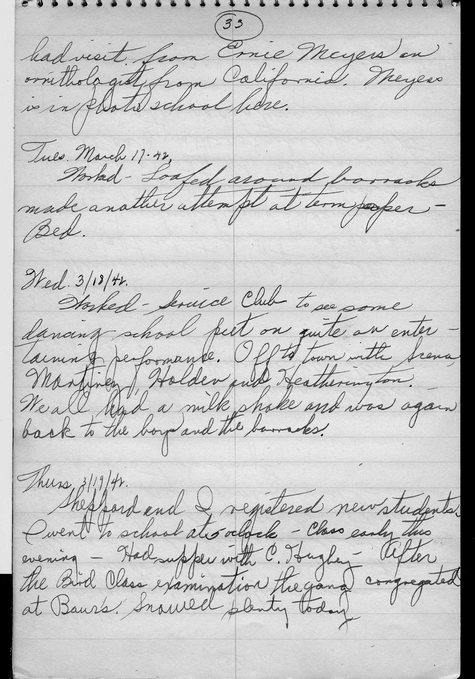 33
had visit from Ernie Meyers an
ornithologist from California. Meyers
is in photo school here.
Tues. March 17-42,
Worked - Loafed around barracks
made another attempt at term paper -
Bed.
Wed. 3/18/42.
Worked - Service Club to see some
dancing school put on quite an enter-
taining performance. Off to town with
Martinez, Holden and Heatherington.
We all had a milk shake and was again
back to the boys and the barracks.
Thurs. 3/19/42.
Sheppard and I registered new students
I went to school at o'clock - Class early this
evening - Had supper with C. Hughey - After
the Bird Class examination the gang congregated
at Baurs. Snowed plenty today